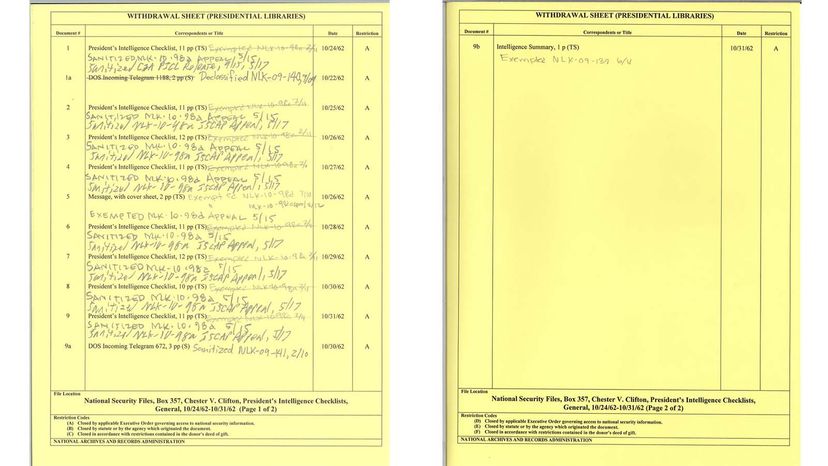 WITHDRAWAL SHEET (PRESIDENTIAL LIBRARIES)
Document # Correspondents or Title Date Restriction
1 President's Intelligence Checklist, 11 pp (TS) Exempted NLK-10-98a 7/11 10/24/62 A
SANITIZED NLK-10-98a APPEAL 5/15
Sanitized CIA PICL Update, 9/15, 5/17
1a DOS Incoming Telegram 1188, 2 pp (S) Declassified NLK-09-140, 10/22/62 A
2 President's Intelligence Checklist, 11 pp (TS) 10/25/62 A
SANITIZED NLK-10-98a APPEAL 5/15
Sanitized NLK-10-98a ISCAP Appeal, 5/17
3 President's Intelligence Checklist, 12 pp (TS) 10/26/62 A
SANITIZED NLK-10-98a APPEAL 5/15
Sanitized NLK-10-98n ISCAP Appeal, 5/17
4 President's Intelligence Checklist, 11 pp (TS) 10/27/62 A
SANITIZED NLK-10-98a APPEAL 5/15
Sanitized NLK-10-98n ISCAP Appeal, 5/17
5 Message, with cover sheet, 2 pp (TS) Exempted NLK-10-98a 10/26/62 A
EXEMPTED NLK-10-98a APPEAL 5/15
6 President's Intelligence Checklist, 11 pp (TS) 10/28/62 A
SANITIZED NLK-10-98a 5/15
Sanitized NLK-10-98n ISCAP Appeal, 5/17
7 President's Intelligence Checklist, 12 pp (TS) 10/29/62 A
SANITIZED NLK-10-98a 5/15
Sanitized NLK-10-98n ISCAP Appeal, 5/17
8 President's Intelligence Checklist, 10 pp (TS) 10/30/62 A
SANITIZED NLK-10-98a 5/15
Sanitized NLK-10-98n ISCAP Appeal, 5/17
9 President's Intelligence Checklist, 11 pp (TS) 10/31/62 A
SANITIZED NLK-10-98a 5/15
Sanitized NLK-10-98n ISCAP Appeal, 5/17
9a DOS Incoming Telegram 672, 3 pp (S) Sanitized NLK-09-141, 2/10 10/30/62 A
File Location
National Security Files, Box 357, Chester V. Clifton, President's Intelligence Checklists,
General, 10/24/62-10/31/62 (Page 1 of 2)
Restriction Codes
(A) Closed by applicable Executive Order governing access to national security information.
(B) Closed by statute or by the agency which originated the document.
(C) Closed in accordance with restrictions contained in the donor's deed of gift.
NATIONAL ARCHIVES AND RECORDS ADMINISTRATION
WITHDRAWAL SHEET (PRESIDENTIAL LIBRARIES)
Document # Correspondents or Title Date Restriction
9b Intelligence Summary, 1 p (TS) 10/31/62 A
Exempted NLK-09-139
File Location
National Security Files, Box 357, Chester V. Clifton, President's Intelligence Checklists,
General, 10/24/62-10/31/62 (Page 2 of 2)
Restriction Codes
(D) Closed by applicable Executive Order governing access to national security information.
(E) Closed by statute or by the agency which originated the document.
(F) Closed in accordance with restrictions contained in the donor's deed of gift.
NATIONAL ARCHIVES AND RECORDS ADMINISTRATION